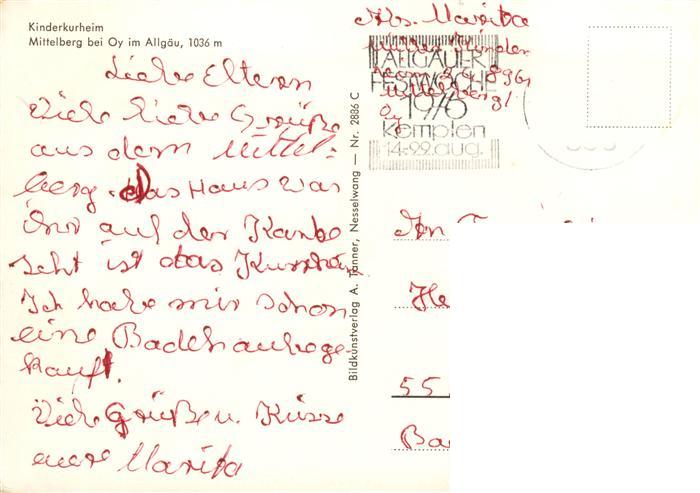 Kinderkurheim
Mittelberg bei Oy im Allgäu, 1036 m
Liebe Eltern
Viele liebe Grüße
aus dem Mittel-
berg. das Haus was
ihr auf der Karte
seht ist das Kurheim
Ich habe mir schon
eine Badehaube ge-
kauft.
Viele Grüße u. Küsse
eure Marita
Bildkunstverlag A. Tanner, Nesselwang — Nr. 2886 C
Abs. Marita
8961
Mittelberg/
Oy
ALLGÄUER
FESTWOCHE
1976
Kempten
14-22. aug.
An
He
55
Ba